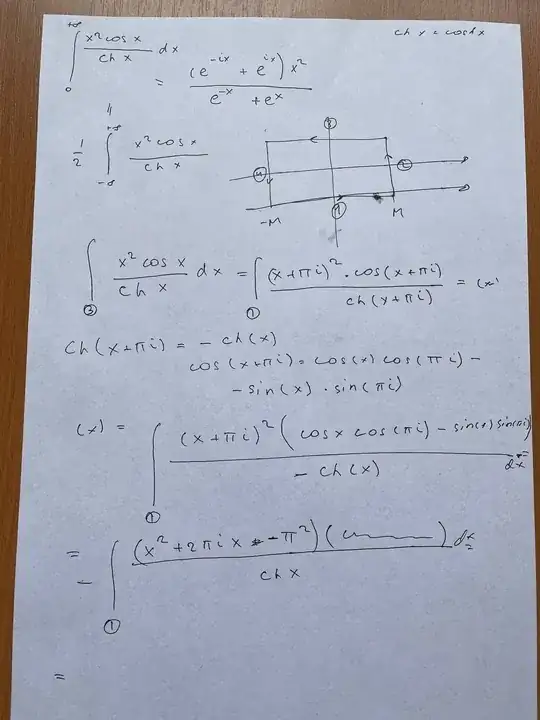 +∞
∫ x² cos x / ch x dx
0
ch x = cosh x
= (e^{-ix} + e^{ix}) x² / e^{-x} + e^x
||
1/2 ∫ x² cos x / ch x
+∞
-∞
③
④ ②
①
-M M
∫ x² cos x / ch x dx = ∫ (x+πi)² · cos(x+πi) / ch(x+πi) = (*)
③ ①
Ch(x+πi) = - ch(x)
cos(x+πi) = cos(x) cos(πi) -
- sin(x) · sin(πi)
(*) = ∫ (x+πi)² (cos x cos(πi) - sin(x) sin(πi)) / - ch(x) dx =
①
= - ∫ (x² + 2πi x - π²)( ) / ch x dx =
①
=